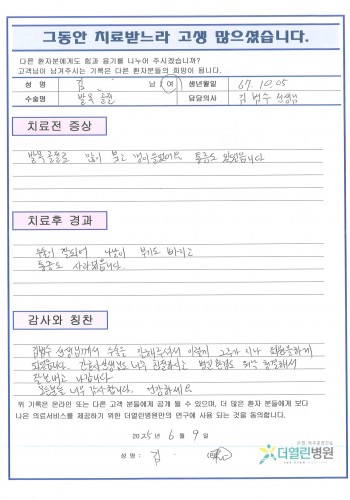 그동안 치료받느라 고생 많으셨습니다.
다른 환자분에게도 힘과 용기를 나누어 주시겠습니까?
고객님이 남겨주시는 기록은 다른 환자분들의 희망이 됩니다.
성 명 김 남 / 여 생년월일 67. 10. 05
수술명 발목 골절 담당의사 김범수 선생님
치료전 증상
발목 골절로 많이 붓고 멍이 들었어요 통증도 있었습니다
치료후 경과
수술이 잘되어 나날이 붓기도 빠지고
통증도 사라졌습니다.
감사와 칭찬
김범수 선생님께서 수술을 잘해주셔서 이렇게
되었습니다. 간호사선생님도 너무 친절하시고 병원
잘 나갑니다
모든분들 너무 감사합니다.
위 기록은 온라인 또는 다른 고객 분들에게 공개 될 수 있으며, 더 많은 환자 분들에게 보다
나은 의료서비스를 제공하기 위한 더열린병원만의 연구에 사용 되는 것을 동의합니다.
2025년 6월 9일
성 명 : 김 (인)
더열린병원